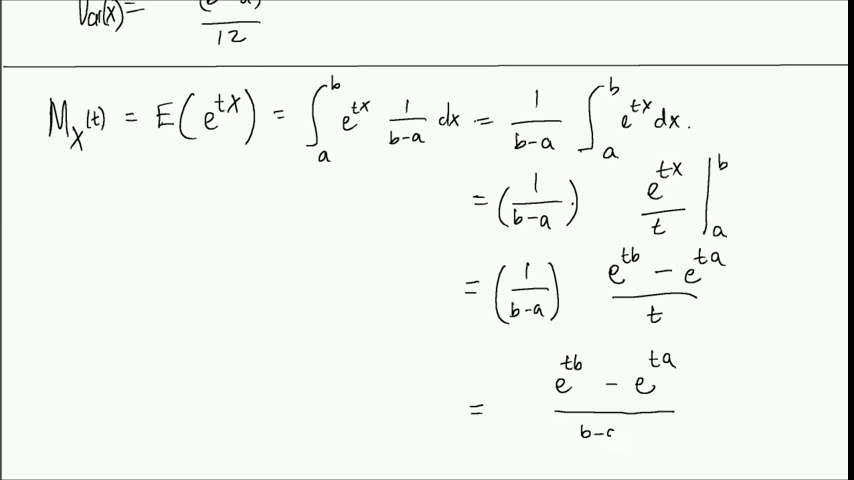 Var(x)=
12
M_X(t) = E(e^{tX}) = ∫_a^b e^{tx} \frac{1}{b-a} dx = \frac{1}{b-a} ∫_a^b e^{tx} dx.
= (\frac{1}{b-a}·) \frac{e^{tx}}{t} |_a^b
= (\frac{1}{b-a}) \frac{e^{tb} - e^{ta}}{t}
= \frac{e^{tb} - e^{ta}}{b-}